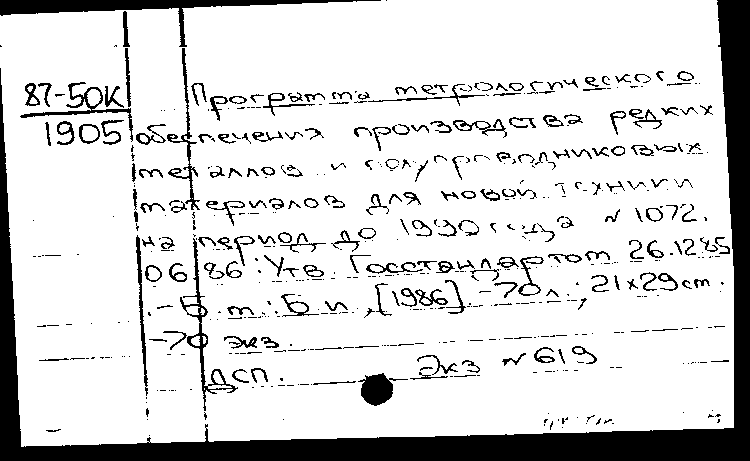 87-50К
1905
Программа метрологического
обеспечения производства редких
металлов и полупроводниковых
материалов для новой техники
на период до 1990 года № 1072.
06.86: Утв. Госстандартом 26.12.85
.-Б.м.: Б.и., [1986]. -70л.; 21x29см.
-70 экз.
ДСП. Экз №619